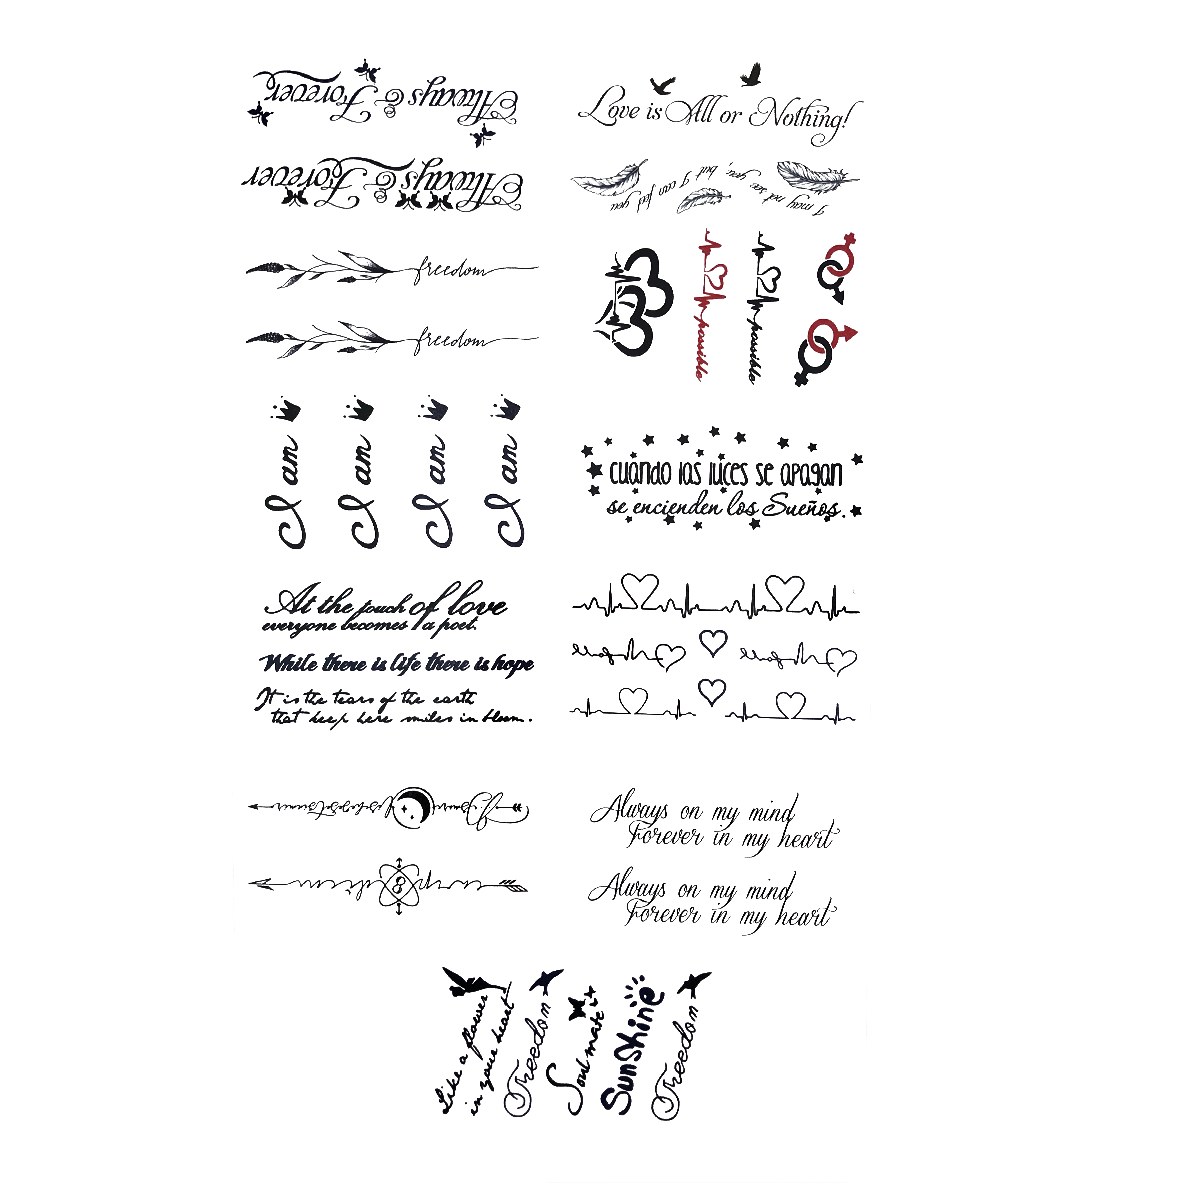 Always & Forever
Always & Forever
freedom
freedom
I am
I am
I am
I am
At the touch of love
everyone becomes a poet.
While there is life there is hope
It is the tears of the earth
that keep here smiles in bloom.
Love is All or Nothing!
I may not see you, but I can feel you
possible
possible
cuando las luces se apagan
se encienden los Sueños.
Always on my mind
Forever in my heart
Always on my mind
Forever in my heart
Like a flower
in your heart
Freedom
Soul mate
Sunshine
Freedom